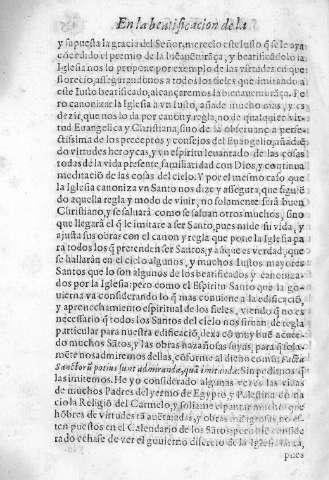 En la beatificacion de la
y supuesta la gracia del Señor, merecio este Iusto q̃ se le aya
cõcedido el premio de la bienauẽturãça, y beatificãdolo la
Iglesia nos lo propone por exemplo de las virtudes en que
florecio, assegurandonos a todos los fieles que imitando a
este Iusto beatificado, alcançaremos la bienauẽturãça. Pe
ro canonizar la Iglesia a vn Iusto, añade mucho mas, y es
dezir, que nos lo da por canõ y regla, no de qualquier vir
tud Euangelica y Christiana, sino de la obseruancia perfe
ctissima de los preceptos y consejos del Euangelio, añadiẽ
do virtudes heroycas, y vn espiritu leuantado de las cosas
todas de la vida presente, familiaridad con Dios, y continua
meditaciõ de las cosas del cielo. Y por el mesmo caso que
la Iglesia canoniza vn Santo nos dize y assegura, que siguiẽ
do aquella regla y modo de viuir, no solamente serà buen
Christiano, y se saluarà como se saluan otros muchos, sino
que llegarà el q̃ le imitare a ser Santo, pues mide su vida, y
ajusta sus obras con el canon y regla que pone la Iglesia pa
ra todos los q̃ pretenden ser Santos, y assi que es verdad, que
se hallaràn en el cielo algunos, y muchos Iustos mayores
Santos que lo son algunos de los beatificados y canoniza-
dos por la Iglesia: pero como el Espiritu Santo que la go-
uierna va considerando lo q̃ mas conuiene a la edificaciõ,
y aprouechamiento espiritual de los fieles, viendo q̃ no es
necessario q̃ todos los Santos del cielo nos siruan de regla
particular para nuestra edificaciõ, dexa cõ muy buẽ acuer-
do muchos Sãtos, y las obras hazañosas suyas, para q̃ sola-
mẽte nos admiremos dellas, cõforme al dicho comũ: Facta
sanctorũ potius sunt admiranda, quã imitanda: Sin pedirnos q̃
las imitemos. He yo considerado algunas vezes las vidas
de muchos Padres del yermo de Egypto, y Palestina
cio la Religiõ del Carmelo, y soliame espantar mucho que
hõbres de virtudes tã auentajadas, y obras milagrosas no es-
ten puestos en el Calendario de los Sãtos: pero he conside
rado echase de ver el gouierno discreto de la Iglesia
pues